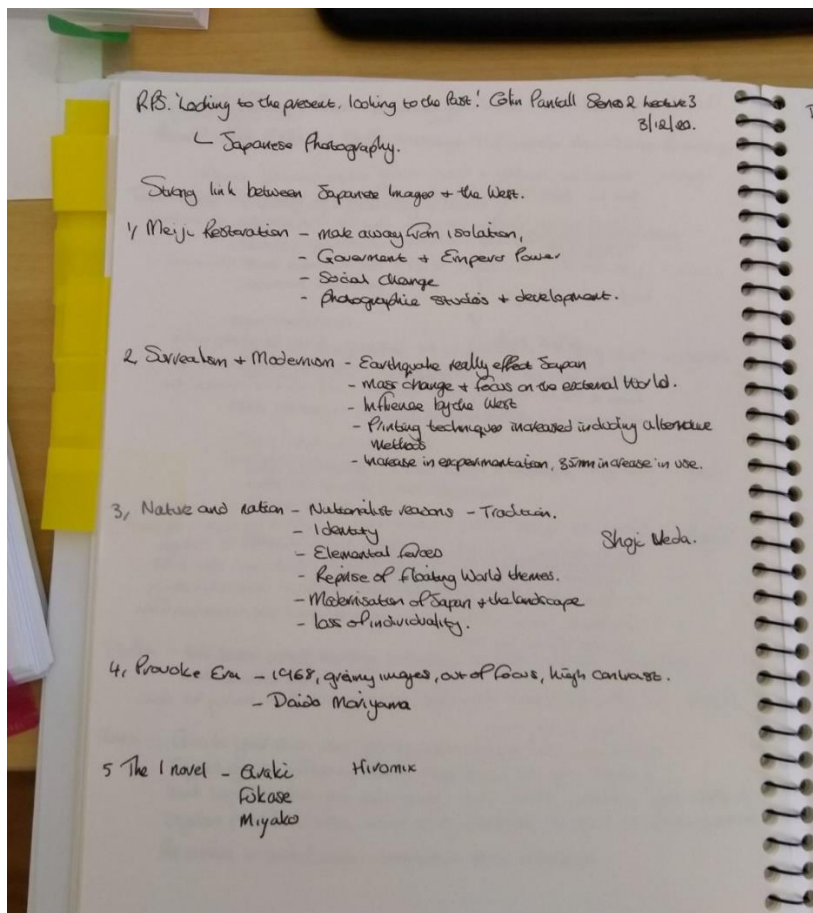 RPS. 'Looking to the present, looking to the Past'. Colin Pantall Series 2 Lecture 3
3/12/20.
Japanese Photography.
Strong link between Japanese Images + the West.
1, Meiji Restoration - make away from isolation,
- Goverment + Emperor Power
- Social change
- Photographic studios + development.
2, Surrealism + Modernism - Earthquake really effect Japan
- Mass change + focus on the external World.
- Influense by the West
- Printing techniques increased including alternative
methods
- Increase in experimentation, 35mm increase in use.
3, Nature and nation - Nationalist reasons - Tradition.
- Identity
- Elemental forces
Shoji Ueda.
- Reprise of Floating World themes.
- Modernisation of Japan + the landscape
- loss of individuality.
4, Provoke Era - 1968, grainy images, out of focus, high contrast.
- Daido Moriyama
5 The I novel - Araki Hiromix
Fukase
Miyako